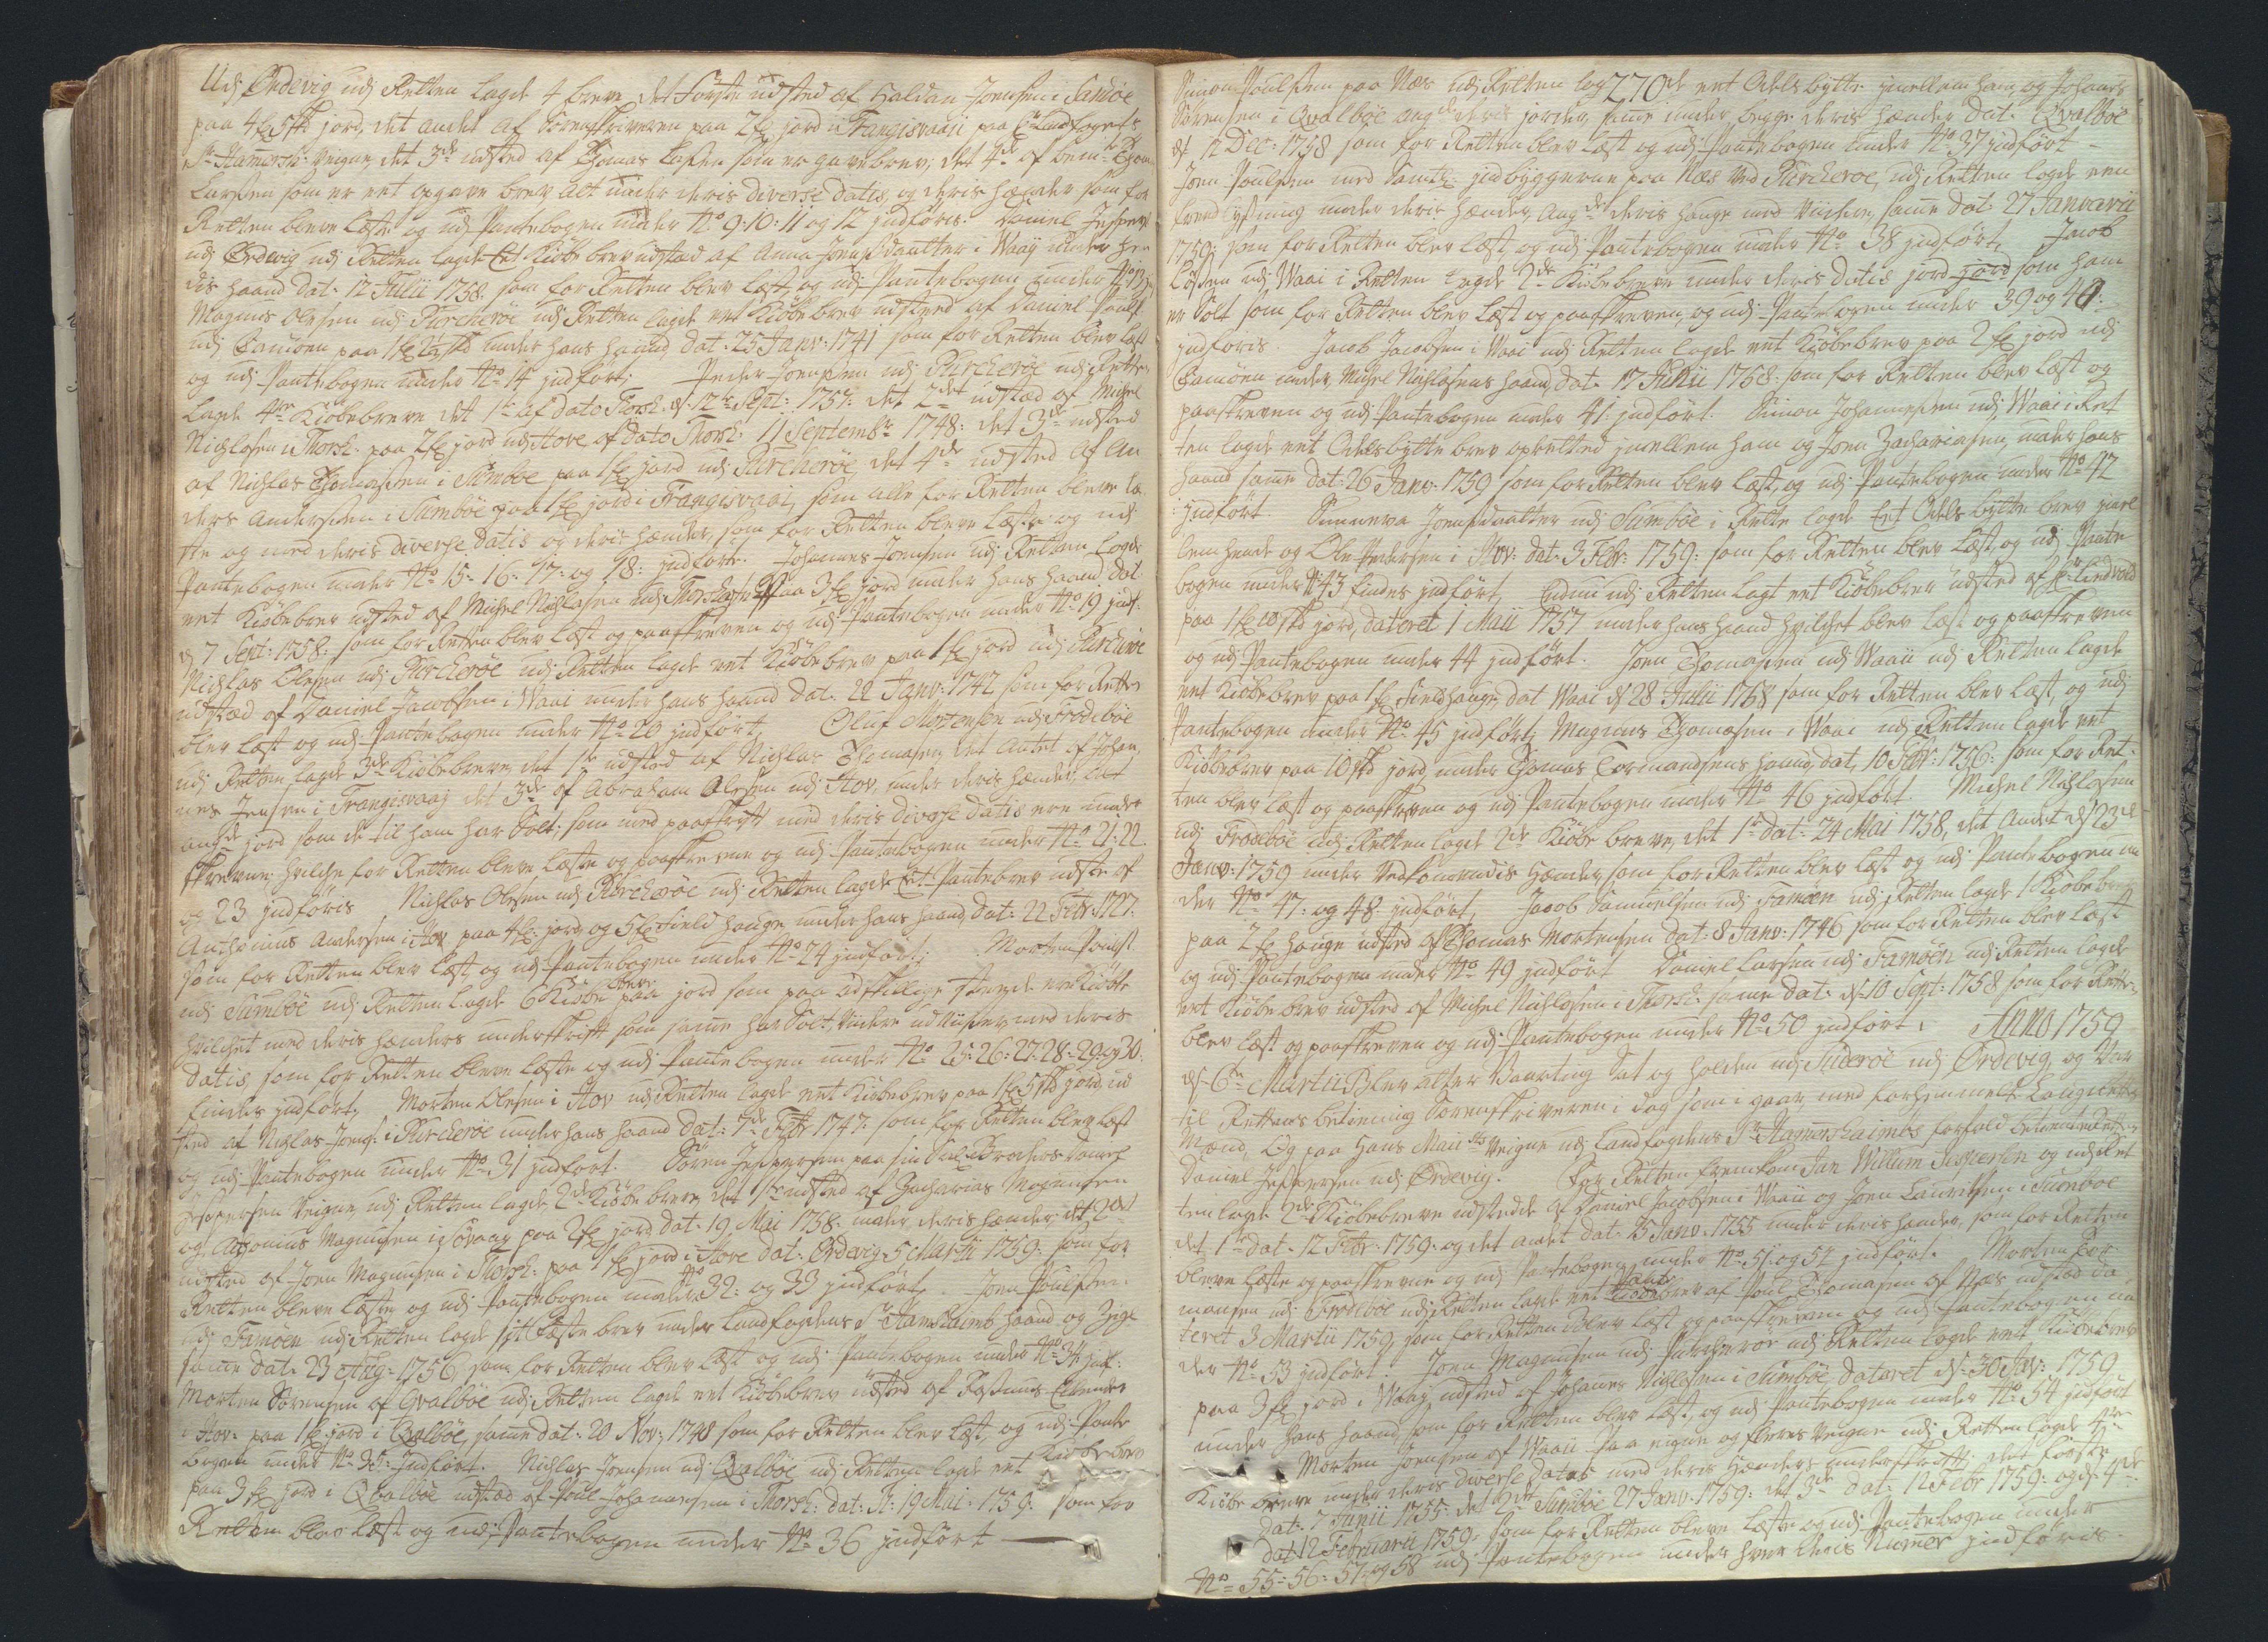 Udj Ørdevig udj Retten lagde 4 breve det Første udsted af Haldan Joensen i Sandøe
paa 4 jord, det andet af Sorenskriveren paa 2 jord i Frangisvaaij paa Landfogets
Sr. Hamersh: veigne, det 3de udsted af Thomas Lassen som er gavebrev, det 4de af bem:te Thom
Larssen som er eet opgave brev alt under deris diverse datis, og deris hænder som for
Retten bleve læste og udj Pantebogen under No 9: 10: 11 og 12 jndføris. Daniel Jespers:
udj Ørdevig udj Retten lagde Et Kiöbe brev udstæd af Anna Joensdaatter i Waaij under hen
dis haand dat: 12 Julii 1758. som for Retten blev læst, og udj Pantebogen under No 13 j
Magnus Olesen udj Porcherøe udj Retten lagde eet Kiöbebrev udsted af Daniel Pouls:
udj Famöen paa 1 2½ under hans haand dat. 25 Janv: 1741 som for Retten blev læst
og udj Pantebogen under No 14 jndfört; Peder Joensen udj Porcherøe udj Retten
lagde 4re Kiöbebreve det 1te af dato Thorsh: d. 12te Sept: 1757: det 2det udstæd af Michel
Nichlasen i Thorsh: paa 2 jord udj Hove af dato Thorsh: 11 Septembr 1748: det 3de udsted
af Nichlas Thomassen i Sumböe paa 1 jord udj Porcheröe det 4de udsted af An
ders Andersen i Sumböe paa 1 jord i Frangisvaai, som alle for Retten bleve læ
ste og med deris diverse datis og deris hænder, som for Retten bleve læste og udj
Pantebogen under No 15: 16: 17: og 18: jndførte. Johannes Joensen udj Retten lagde
eet Kiöbe brev udsted af Michel Nichlasen udj Thorshavn paa 3 jord under hans haand dat.
d 7 Sept: 1758: som for Retten blev læst og paaskreven og udj Pantebogen under No 19 jndf:
Nichlas Olesen udj Porcherøe udj Retten lagde eet Kiöbebrev paa 1 jord udj
udstæd af Daniel Jacobsen i Waai under hans haand dat. 22 Janv: 1742 som for Retten
blev læst og udj Pantebogen under No 20 jndfört; Oluf Mortensen udj Frodeböe
udj Retten lagde 3de Kiöbebreve, det 1te udsted af Nichlas Thomasen, det Andet af Johan
nes Jensen i Frangisvaaj det 3de af Abraham Olesen udj Hov. under deris hænder, alt
angde jord som de til ham har Solt; som med paaskrift med deris diverse datis ere under
skrevne, hvilche for Retten bleve læste og paaskrevne og udj Pantebogen under No 21: 22.
og 23 jndföris Nichlas Olesen udj Porcheröe udj Retten lagde Et Pantebrev udste af
Anthonius Andersen i Hov paa 4 jord, og 5 Field hauge under hans haand, dat: 22 Febr 1727:
som for Retten blev læst og udj Pantebogen under No 24 jndfört; Morten
udj Sumböe udj Retten lagde 6 Kiöbe breve paa jord som paa adskillige stæder ere Kiöbte
hvilchet med deris hænders underskrift som samme har Solt
datis, som for Retten bleve læste og udj Pantebogen under No 25: 26: 27: 28: 29 og 30:
findes jndfört; Morten Olesen i Hov udj Retten lagde eet Kiöbebrev paa 1 5 jord ud
sted af Nichlas Joens: i Porcheröe under hans haand Dat: 7de Febr 1747: som for Retten blev læst
og udj Pantebogen under No 31 jndfört. Sören Jespersen paa sin Broders Daniel
Jespersen Veigne, udj Retten lagde, 2de Kiöbe breve, det 1te udsted af Zacharias Magnusen
og Anthonius Magnusen i Sövaag paa 2 jord, dat: 19 Mai 1758. under deris hænder, det 2det
udsted af Joen Magnusen i Thorsh: paa 1 jord i Hove dat: Ørdevig 5 Martii 1759: som for
Retten bleve læste og udj Pantebogen under No 32: og 33 jndfört. Joen Poulsen
udj Famöen udj Retten lagde sit Fæste brev under Landfogdens Sr Hamershaimb haand og Zigl
samme dat: 23 Aug: 1756, som for Retten blev læst og udj Pantebogen under No 34 jndf:
Morten Sörensen af Qvalböe udj Retten lagde eet Kiöbebrev udsted af Rasmus
i Hov: paa 1 jord i Qvalböe, samme dat: 20 Nov: 1748 som for Retten blev læst, og udj Pante
bogen under No 35: jndfört. Nichlas Joensen udj Qvalböe udj Retten lagde eet Kiöbebrev
paa 3 jord i Qvalböe udstæd af Poul Johannesen i Thorsh: dat: 19 Mai: 1759: som for
Retten blev læst og udj Pantebogen under No 36 jndfört
270
Simon Poulsen paa Næs udj Retten lagde eet Odelsbytte jmellem ham og Johannes
Sörensen i Qvalböe angde deris jorder, samme under begge deris hænder dat. Qvalböe
d 12 Dec: 1758 som for Retten blev læst og udj Pantebogen under No 37 jndfört
Joen Poulsen med samtl: jndbyggerne paa Næs ved Porcheroe, udj Retten lagde een
fredlysning under deris hænder, angde deris hauge med viidere, samme dat. 27 Januarii
1759; som for Retten blev læst, og udj Pantebogen under No 38 jndfört; Jacob
udj Waai i Retten lagde 2de Kiöbebreve under deris datis jord jord som ham
er Solt som for Retten blev læst og paaskreven, og udj Pantebogen under 39 og 40:
jndföris. Jacob Jacobsen i Waai udj Retten lagde eet Kiöbebrev paa 2 jord udj
Famöen under Michel Nichlasens haand, dat. 17 Julii 1758: som for Retten blev læst og
paaskreven og udj Pantebogen under 41: jndfört. Simon Johannesen udj Waai i Ret
ten lagde eet Odelsbytte brev oprettet jmellem ham og Joen Zachariasen, under hans
haand samme dat: 26 Janv: 1759 som for Retten blev læst, og udj Pantebogen under No 42
jndfört. Sunneva Joensdaatter udj Sumböe i Rette lagde Eet Odels bytte brev jmel
lem hende og Ole Pedersen i Hov: dat: 3 Febr: 1759: som for Retten blev læst, og udj Pante
bogen under No 43 findes jndfört, Endnu udj Retten lagt eet Kiöbebrev udsted af Sr: Lindvold
paa 1 10 jord, dateret 1 Maii 1757 under hans haand hvilchet blev læst og paaskreven
og udj Pantebogen under 44 jndfört. Joen Thomasen udj Waaii udj Retten lagde
eet Kiöbebrev paa 1 Field hauge, dat Waai d 28 Julii 1758 som for Retten blev læst, og udj
Pantebogen under No 45 jndfört; Magnus Thomasen i Waai udj Retten lagde eet
Kiöbebrev paa 10 jord, under Thomas Tormandsens haand, dat, 10 Febr: 1756: som for Ret
ten blev læst og paaskreven og udj Pantebogen under No 46 jndfört. Michel Nichlasen
udj Frodeböe udj Retten lagde 2de Kiöbe breve, det 1te dat: 24 Mai 1758, det Andet d 23de
Janv: 1759 under Vedkommendis hænder, som for Retten blev læst og udj Pantebogen un
der No 47: og 48: jndfört, Jacob Samuelsen udj Famöen udj Retten lagde 1 Kiöbebrev
paa 2 hauge udsted af Thomas Mortensen dat: 8 Janv: 1746 som for Retten blev læst
og udj Pantebogen under No 49 jndfört Daniel Larsen udj Famöen udj Retten lagde
eet Kiöbe brev udsted af Michel Nichlasen i Thorsh: samme dat: d 10 Sept: 1758 som for Retten
blev læst og paaskreven og udj Pantebogen under No 50 jndfört. Anno 1759
d. 6te Martii Blev atter Vaarting Sat og holden udj Suderöe udj Ørdevig, og Var
til Rettens betiening Sorenskriveren i dag som i gaar, med forhenmelte Laugrettes
Mænd, Og paa Hans Maiits Veigne udj Landfogdens Sr. Hamershaimbs forfald betiente Retten
Daniel Jespersen udj Ørdevig. For Retten fremkom Jan Willum Jespersen og udj Ret
ten lagde 2de Kiöbebreve udstedde af Daniel Jacobsen i Waaii og Joen Lauridsen i Sumboe
det 1te dat. 12 Febr: 1759: og det andet dat: 15 Janv: 1755 under deris hænder, som for Retten
bleve læste og paaskrevne og udj Pantebogen under No 51: og 52 jndfört. Morten For
mansen udj Frodeböe udj Retten lagde eet Pantebrev af Poul Thomasen af Næs udstæd da
teret 3 Martii 1759, som for Retten blev læst og paaskreven og udj Pantebogen un
der No 53 jndfört. Joen Magnusen udj Porcheröe udj Retten lagde eet Kiöbebrev
paa 3 jord i Waaij udsted af Johannes Nichlasen i Sumböe dateret d 30 Jav: 1759
under hans haand, som for Retten blev læst, og udj Pantebogen under No 54 jndfört
Morten Joensen af Waaii paa eigne og fleres veigne udj Retten lagde 4re
Kiöbe breve under deris diverse datas med deris hænders underskrift, det förste
dat: 7 Junii 1755 det 2det Sumböe 27 Janv: 1759: det 3de dat: 12 Febr 1759: og d 4de
dat 12 Februarii 1759. som for Retten bleve læste og udj Pantebogen under
No 55: 56: 57: og 58 udj Pantebogen under hver deris Numer jndföris.